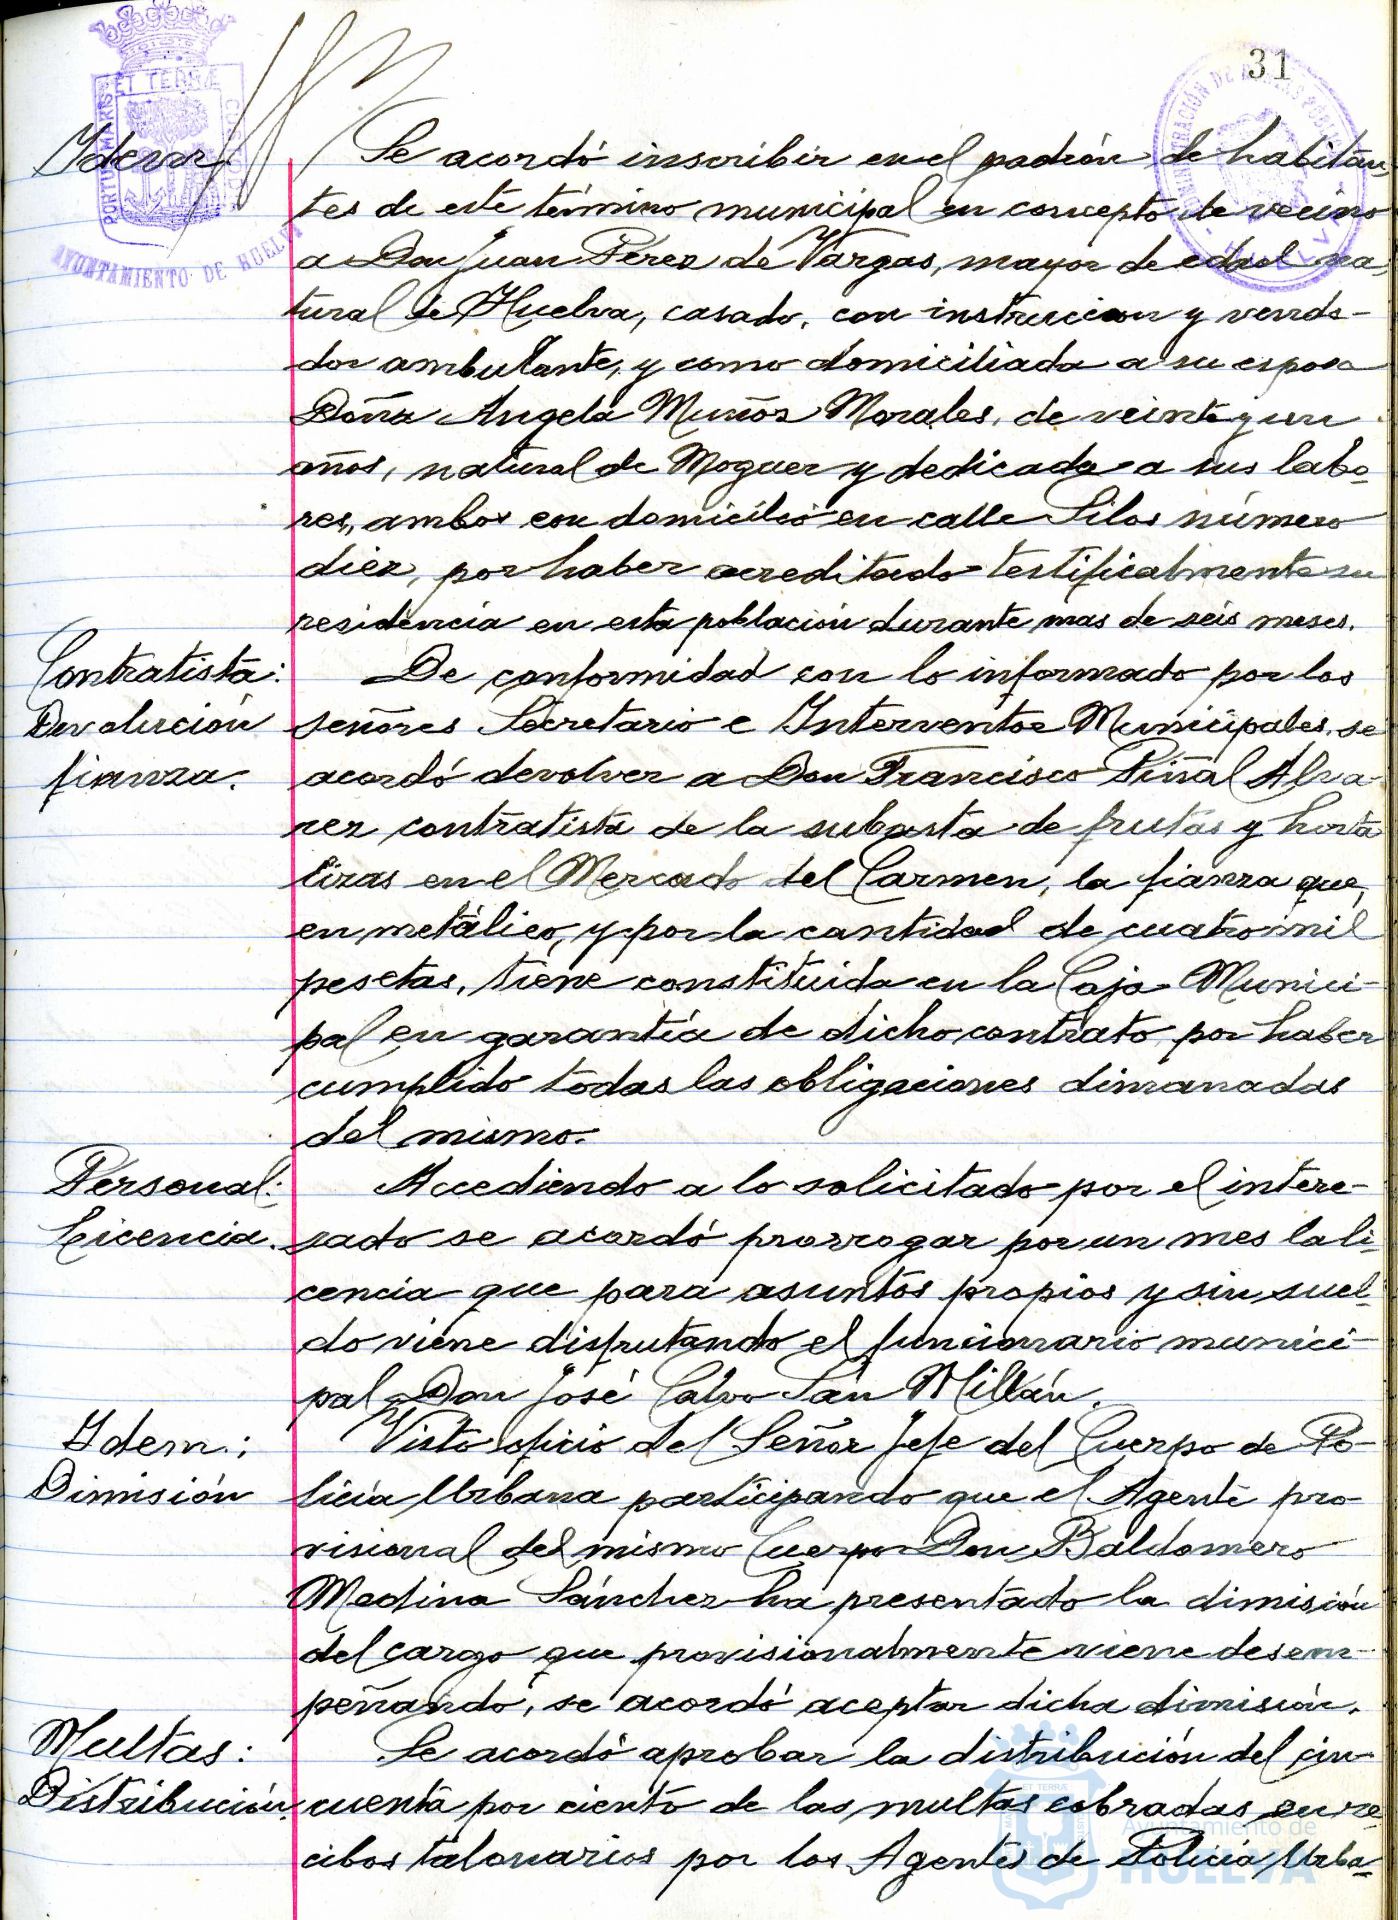 31
PORTUS MARIS ET TERRÆ CUSTODIA
AYUNTAMIENTO DE HUELVA
Ydem.
Se acordó inscribir en el padrón de habitan-
tes de este término municipal en concepto de vecino
a Don Juan Pérez de Vargas, mayor de edad na-
tural de Huelva, casado, con instruccion y vende-
dor ambulante, y como domiciliada a su esposa
Doña Angela Muñoz Morales, de veinte y un
años, natural de Moguer y dedicada a sus labo-
res, ambos con domicilio en calle Silos número
diez, por haber acreditado testificalmente su
residencia en esta población durante mas de seis meses.
Contratista:
Devolución
fianza.
De conformidad con lo informado por los
señores Secretario e Interventor Municipales, se
acordó devolver a Don Francisco Piñal Alva-
rez contratista de la subasta de frutas y horta
lizas en el Mercado del Carmen, la fianza que,
en metálico, y por la cantidad de cuatro mil
pesetas, tiene constituida en la Caja Munici-
pal en garantía de dicho contrato, por haber
cumplido todas las obligaciones dimanadas
del mismo.
Personal:
Licencia.
Accediendo a lo solicitado por el intere-
sado se acordó prorrogar por un mes la li-
cencia que para asuntos propios y sin suel-
do viene disfrutando el funcionario munici-
pal Don José Calvo San Millán.
Ydem.:
Dimisión
Visto oficio del Señor Jefe del Cuerpo de Po-
licía Urbana participando que el Agente pro-
visional del mismo Cuerpo Don Baldomero
Medina Sánchez ha presentado la dimisión
del cargo que provisionalmente viene desem-
peñando, se acordó aceptar dicha dimisión.
Multas:
Distribución.
Se acordó aprobar la distribución del cin-
cuenta por ciento de las multas cobradas en re
cibos talonarios por los Agentes de Policía Urba-
Ayuntamiento de
HUELVA